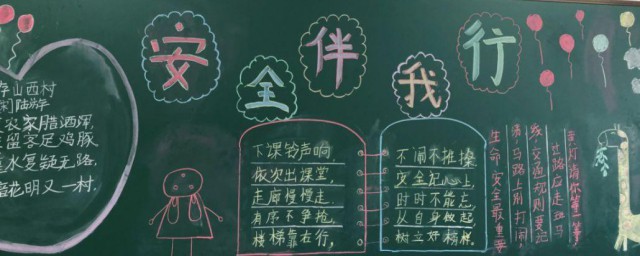 安全伴我行
游山西村
陆游
农家腊酒浑
留客足鸡豚
水复疑无路
花明又一村
下课铃声响
依次出课堂,
走廊慢慢走
有序不争抢,
楼梯靠右行,
不闹不推搡
安全记心上,
时时不能忘
从自身做起
树立好榜样。
红灯请你等一等
过路应走斑马
我,交通规则要
马路上别打闹,
生命安全最重要